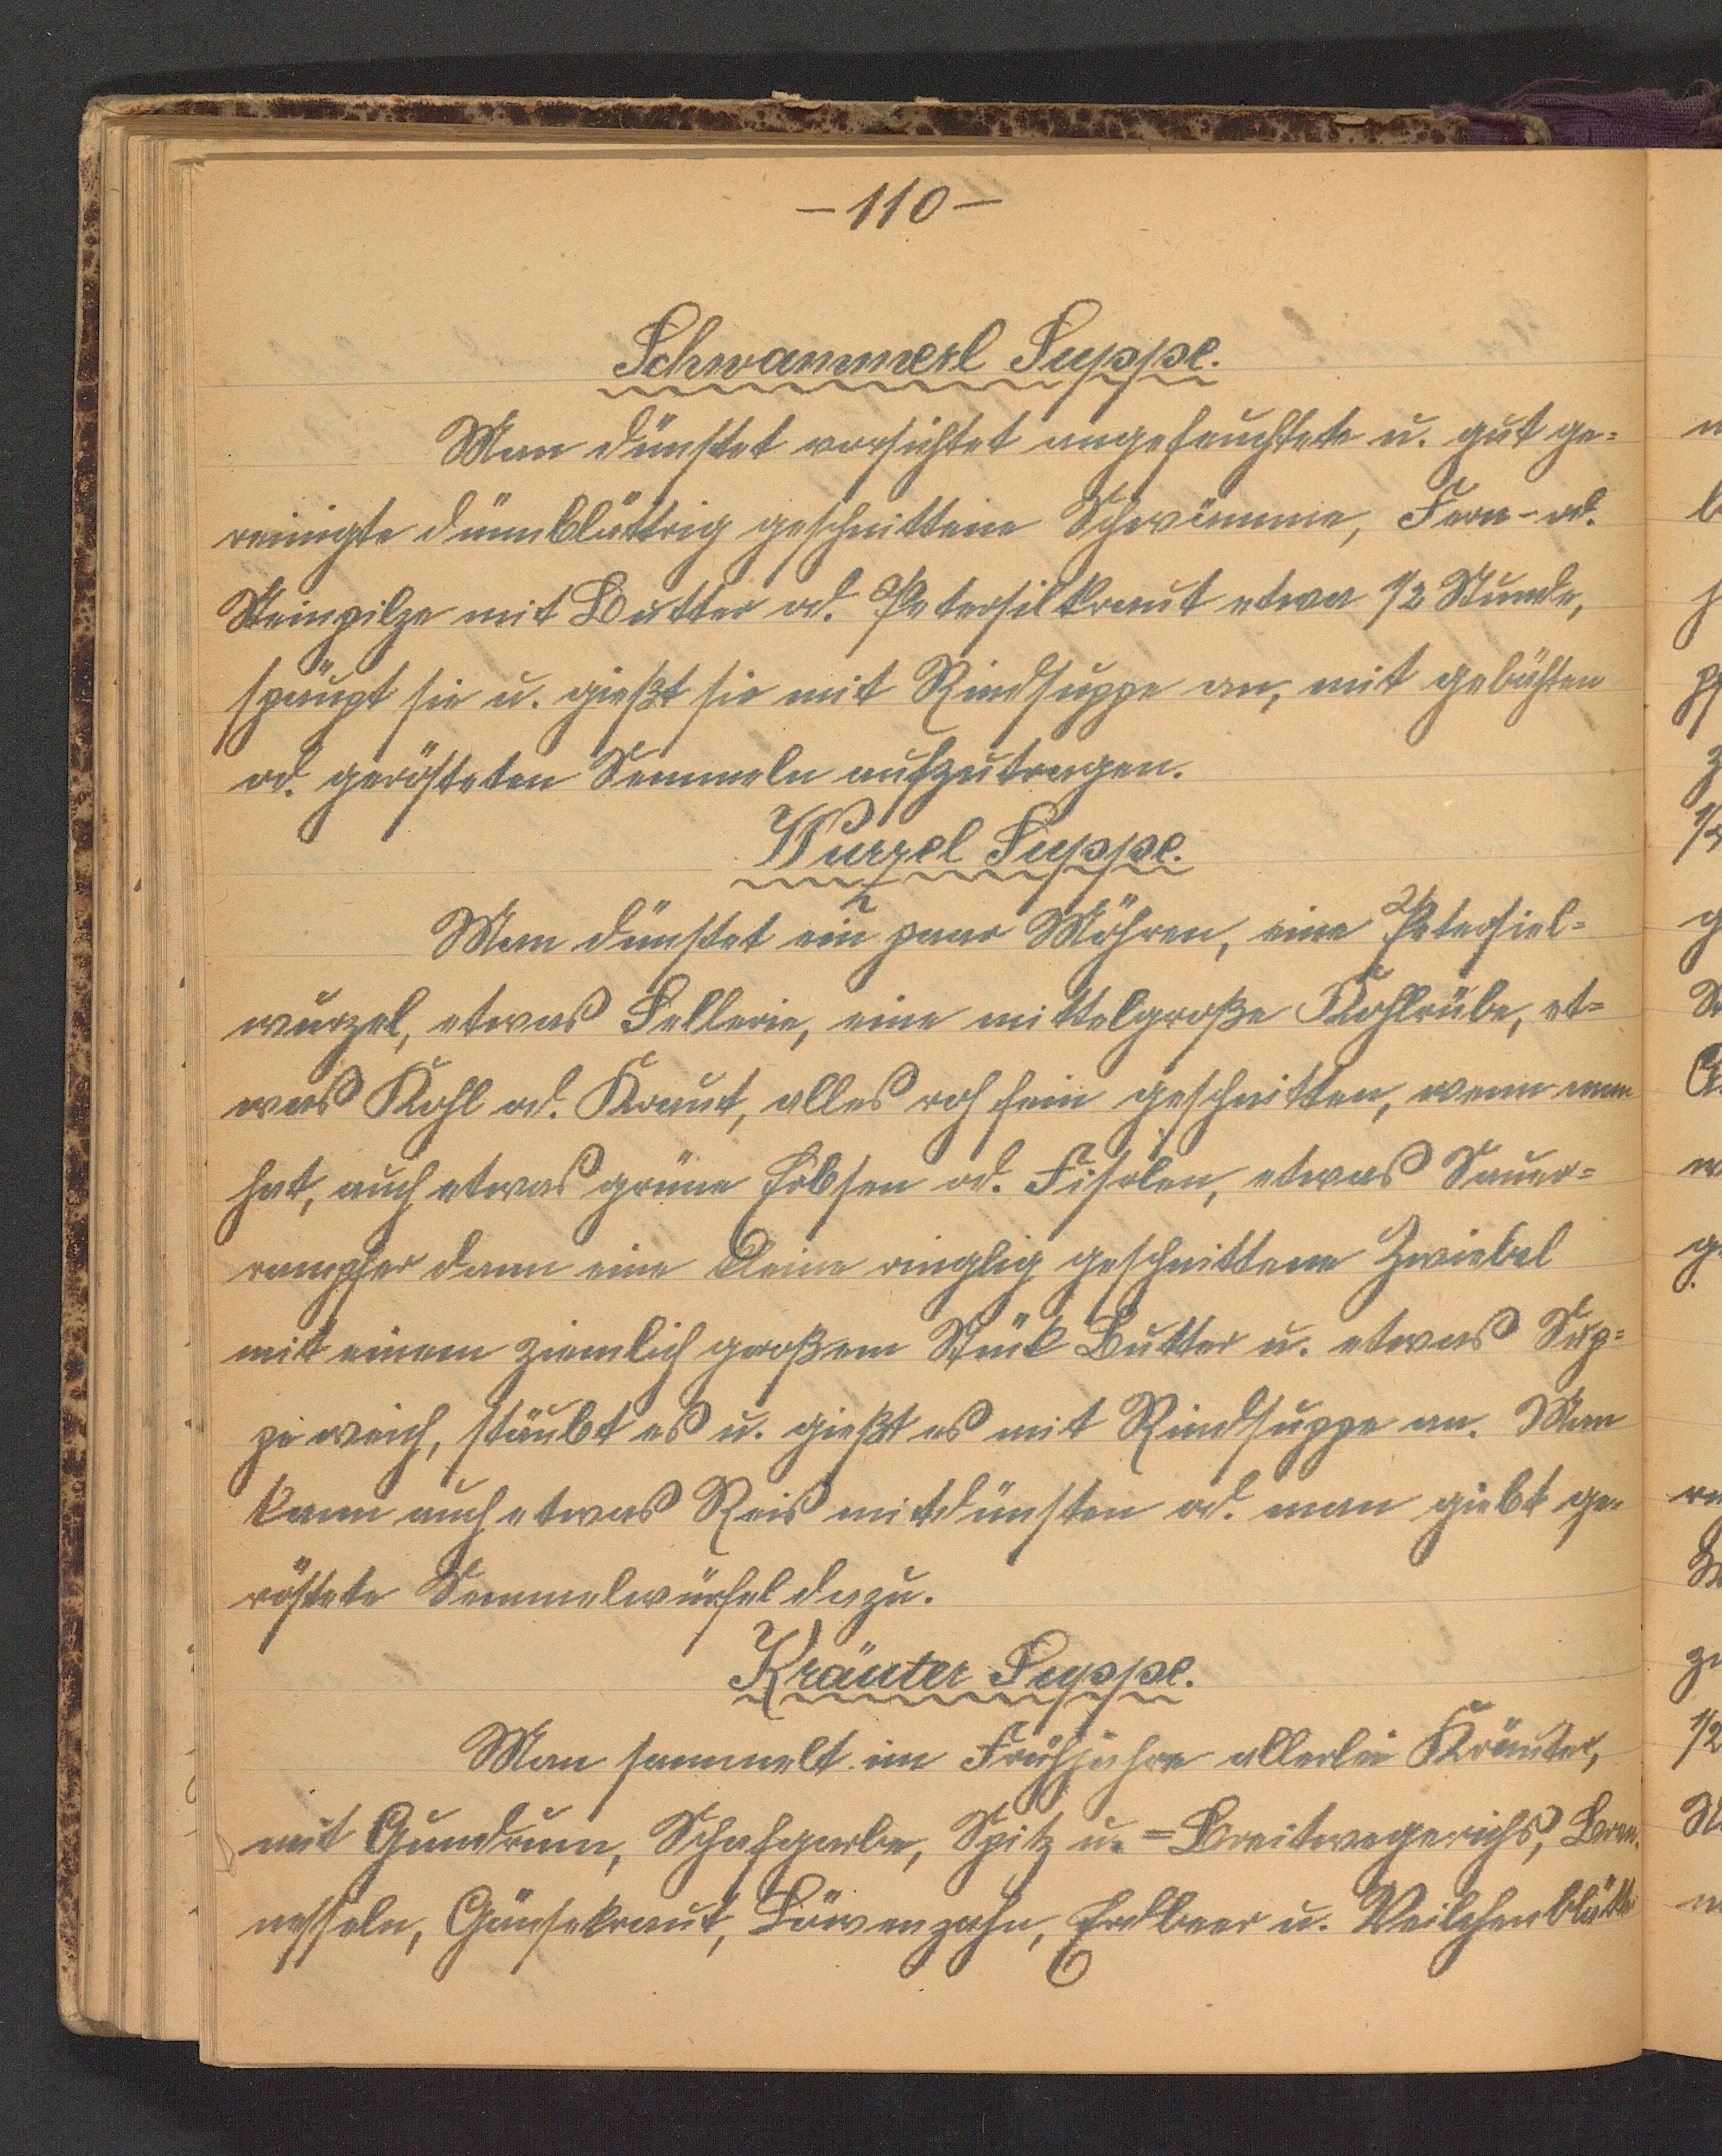 -110-
Schwammerl Suppe.
Man dünstet vorsichtet angefeuchtete u. gut ge=
reinigte dünnblättrig geschnittene Schwämme, od.
Steinpilze mit Butter od. Petersilkraut etwa 1/2 Stunde,
u. gießt sie mit Rindsuppe an, mit gebähten
od. gerösteten Semmeln aufzutragen.
Wurzel Suppe.
Man dünstet ein paar Möhren, eine Petersiel=
wurzel, etwas Sellerie, eine mittelgroße Kohlrübe, et=
was Kohl od. Kraut, alles roh fein geschnitten, wenn man
hat, auch etwas grüne Erbsen od. Fisolen, etwas Sauer=
rampfer dann eine kleine ringlig geschnittene Zwiebel
mit einem ziemlich großem Stück Butter u. etwas Sup=
pe weich, stäubt es u. gießt es mit Rindsuppe an. Man
kann auch etwas Reis mitdünsten od. man giebt ge-
röstete Semmelwürfel dazu.
Kräuter Suppe.
Man sammelt im Frühjahre allerlei Kräuter,
mit Schafgarbe, Spitz u. =Breitwegerichs, Bren-
nesseln, Gänsekraut, Löwenzahn, Erdbeer u. Veilchenblätte